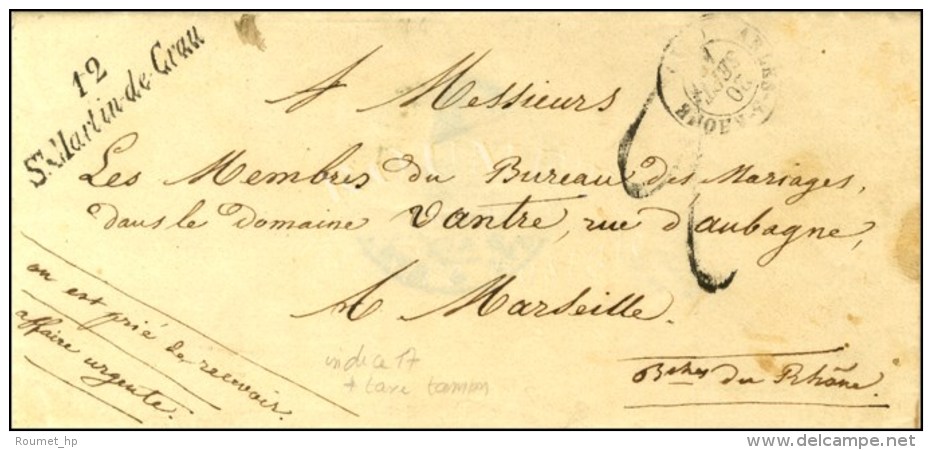 12
St. Martin-de-Crau
ARLES-S-RHONE
SEPT
A Messieurs
Les Membres du Bureau des Mariages,
dans le Domaine Vantre, rue d'aubagne,
A Marseille.
Bches du Rhône.
on est prié de recevoir.
affaire urgente.
indice 17
+ taxe tampon
Roumet_hp
delcampe.net